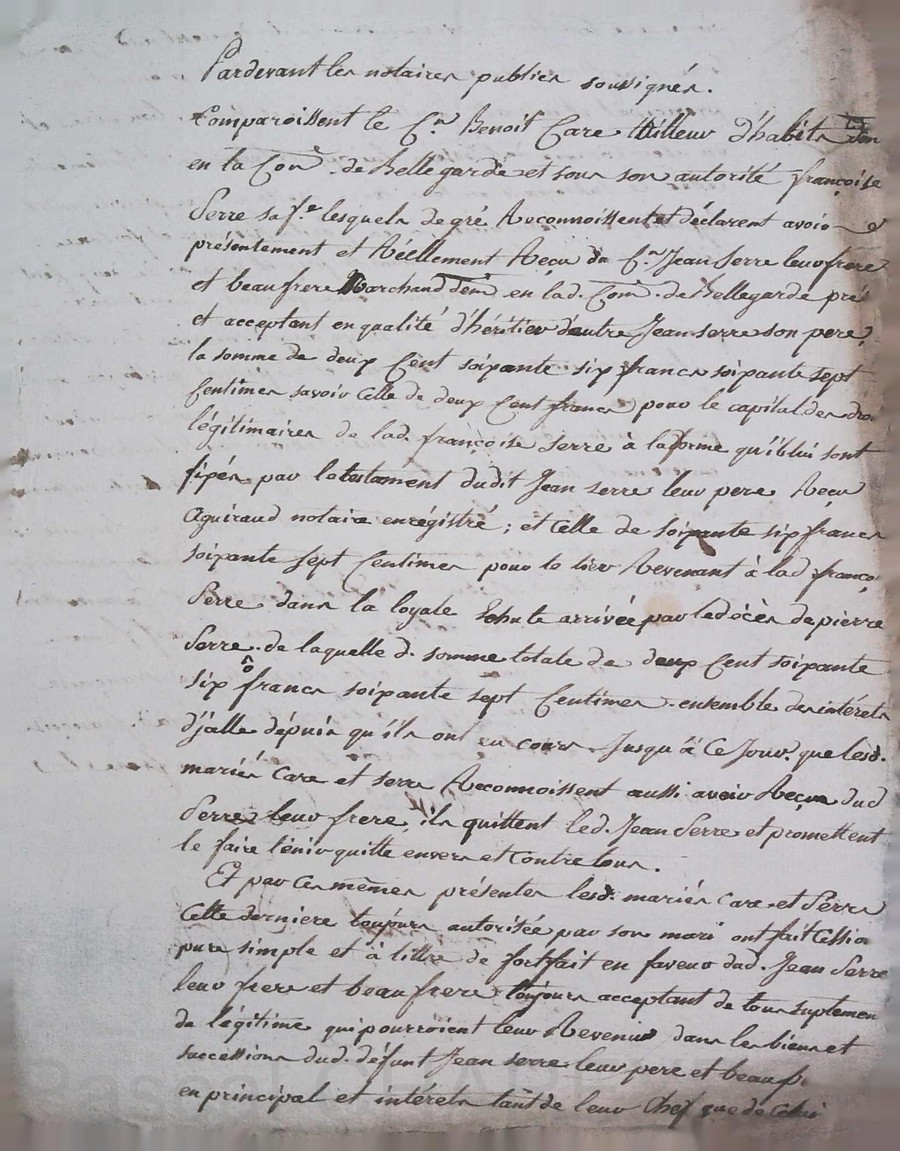 Pardevant les notaires publics soussignés.
Comparoissent le C.en Benoit Care tailleur d'habits dem
en la Com. de Bellegarde et sous son autorité françoise
Serre sa f.e lesquels de gré Reconnoissent et déclarent avoir
présentement et Réellement Reçu du C.en Jean Serre leur frere
et beaufrere Marchand dem en lad. Com. de Bellegarde pré
et acceptant en qualité d'héritier d'autre Jean serre son pere,
la somme de deux Cent soixante six francs soixante sept
Centimes savoir Celle de deux Cent francs pour le capital des dro
légitimaires de lad. françoise serre à la forme qu'ils lui sont
fixés par le testament dudit Jean serre leur pere Reçu
Aguiraud notaire enrégistré ; et Celle de soixante six francs
soixante sept Centimes pour le tiers Revenant à lad françoi
Serre dans la loyale Echute arrivée par le décès de pierre
Serre. de laquelle d. somme totale de deux Cent soixante
six francs soixante sept Centimes. ensemble des intérets
d'jcelle dépuis qu'ils ont eu cours Jusqu'à Ce Jour. que lesd.
mariés Care et serre Reconnoissent aussi avoir Reçus dud
Serre leur frere, ils quittent led. Jean Serre et promettent
le faire tenir quitte envers et Contre tous.
Et par Ces mêmes présentes lesd. mariés Care et Serre
Cette derniere toujours autorisée par son mari ont fait Cession
pure simple et à titre de fortfait en faveur dud. Jean Serre
leur frere et beaufrere toujours acceptant de tous suplemen
de légitime qui pourroient leur Revenir dans les biens et
successions dud. défunt Jean serre leur pere et beaup.
en principal et intérets tant de leur Chef que de Celui